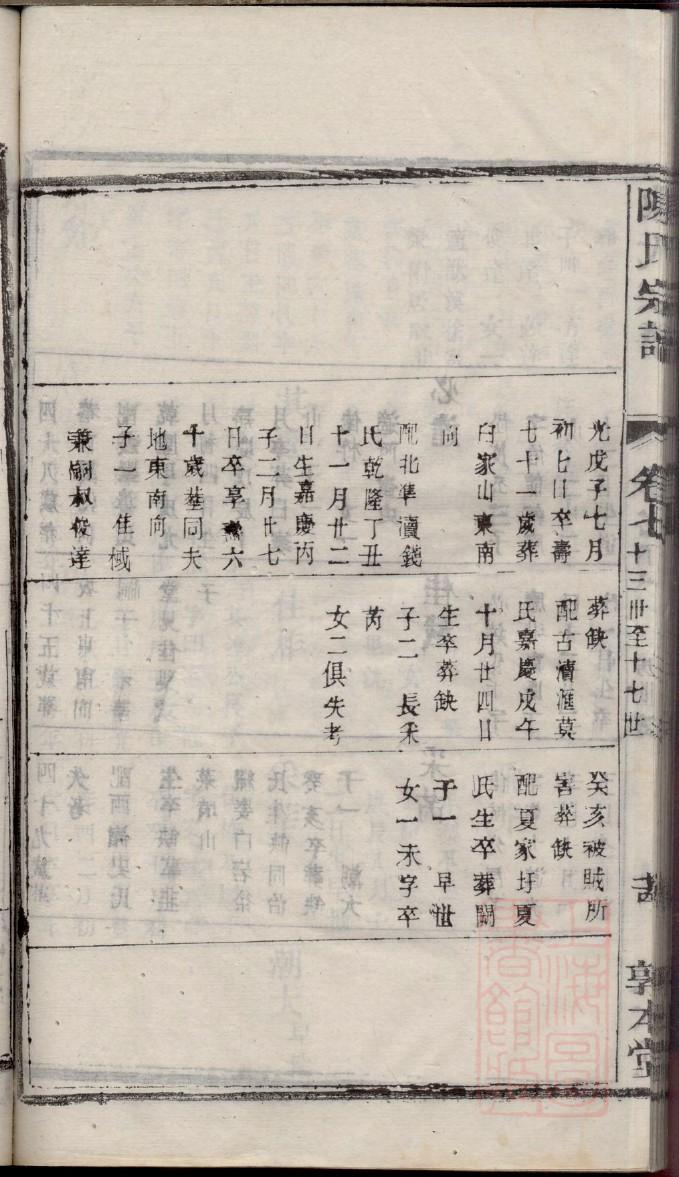 陳氏宗譜
卷七
十三世至十七世
敦本堂
光戊子七月
初七日卒壽
七十一歲葬
白家山東南
向
配北準瀆錢
氏乾隆丁丑
十一月廿二
日生嘉慶丙
子二月廿七
日卒享壽六
十歲墓同夫
地東南向
子一 佳棫
兼嗣叔俊達
葬缺
配古瀆滙莫
氏嘉慶戊午
十月廿四日
生卒葬缺
子二 長采
芮
女二俱失考
癸亥被賊所
害葬缺
配夏家圩夏
氏生卒葬闕
子一 早世
女一未字卒
上海圖書館藏